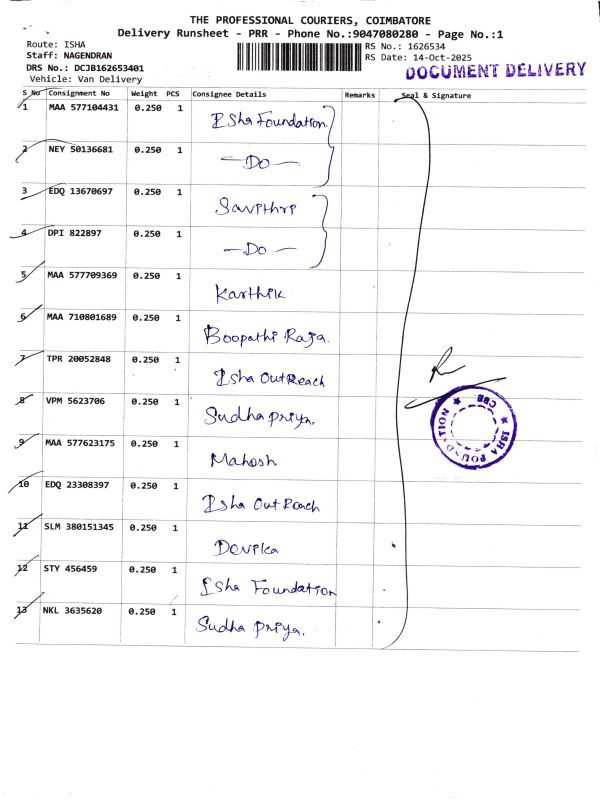 THE PROFESSIONAL COURIERS, COIMBATORE
Delivery Runsheet - PRR - Phone No.:9047080280 - Page No.:1
Route: ISHA
Staff: NAGENDRAN
DRS No.: DCJB162653401
Vehicle: Van Delivery
RS No.: 1626534
RS Date: 14-Oct-2025
DOCUMENT DELIVERY
S No Consignment No Weight PCS Consignee Details Remarks Seal & Signature
1 MAA 577104431 0.250 1 Isha Foundation
2 NEY 50136681 0.250 1 —Do—
3 EDQ 13670697 0.250 1 Savithri
4 DPI 822897 0.250 1 —Do—
5 MAA 577709369 0.250 1 Karthik
6 MAA 710801689 0.250 1 Boopathi Raja.
7 TPR 20052848 0.250 1 Isha OutReach
8 VPM 5623706 0.250 1 Sudha priya.
9 MAA 577623175 0.250 1 Mahesh
10 EDQ 23308397 0.250 1 Isha Out Reach
11 SLM 380151345 0.250 1 Devika
12 STY 456459 0.250 1 Isha Foundation
13 NKL 3635620 0.250 1 Sudha priya.
ISHA FOUNDATION
CBE